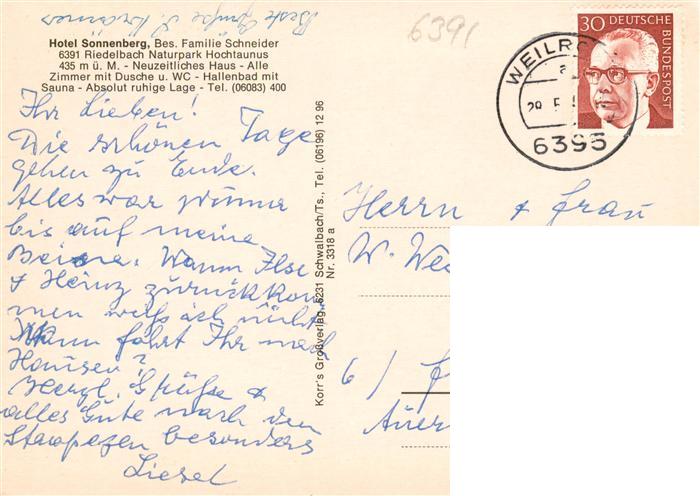 Beste Grüße
6391
Hotel Sonnenberg, Bes. Familie Schneider
6391 Riedelbach Naturpark Hochtaunus
435 m ü. M. - Neuzeitliches Haus - Alle
Zimmer mit Dusche u. WC - Hallenbad mit
Sauna - Absolut ruhige Lage - Tel. (06083) 400
30 DEUTSCHE BUNDESPOST
WEILRO
a
6395
Ihr Lieben!
Die schönen Tage
gehen zu Ende.
Alles war prima
bis auf meine
Beine. Wann Ilse
+ Heinz zurückkom
men weiß ich nicht.
Wann fährt Ihr nach
Hausen?
Herzl. Grüße +
alles Gute nach den
Strapazen besonders
Liesel
Korr's Großverlag, 6231 Schwalbach/Ts., Tel. (06196) 12 96
Nr. 3318 a
Herrn + Frau
W. We
6 / F
Auer